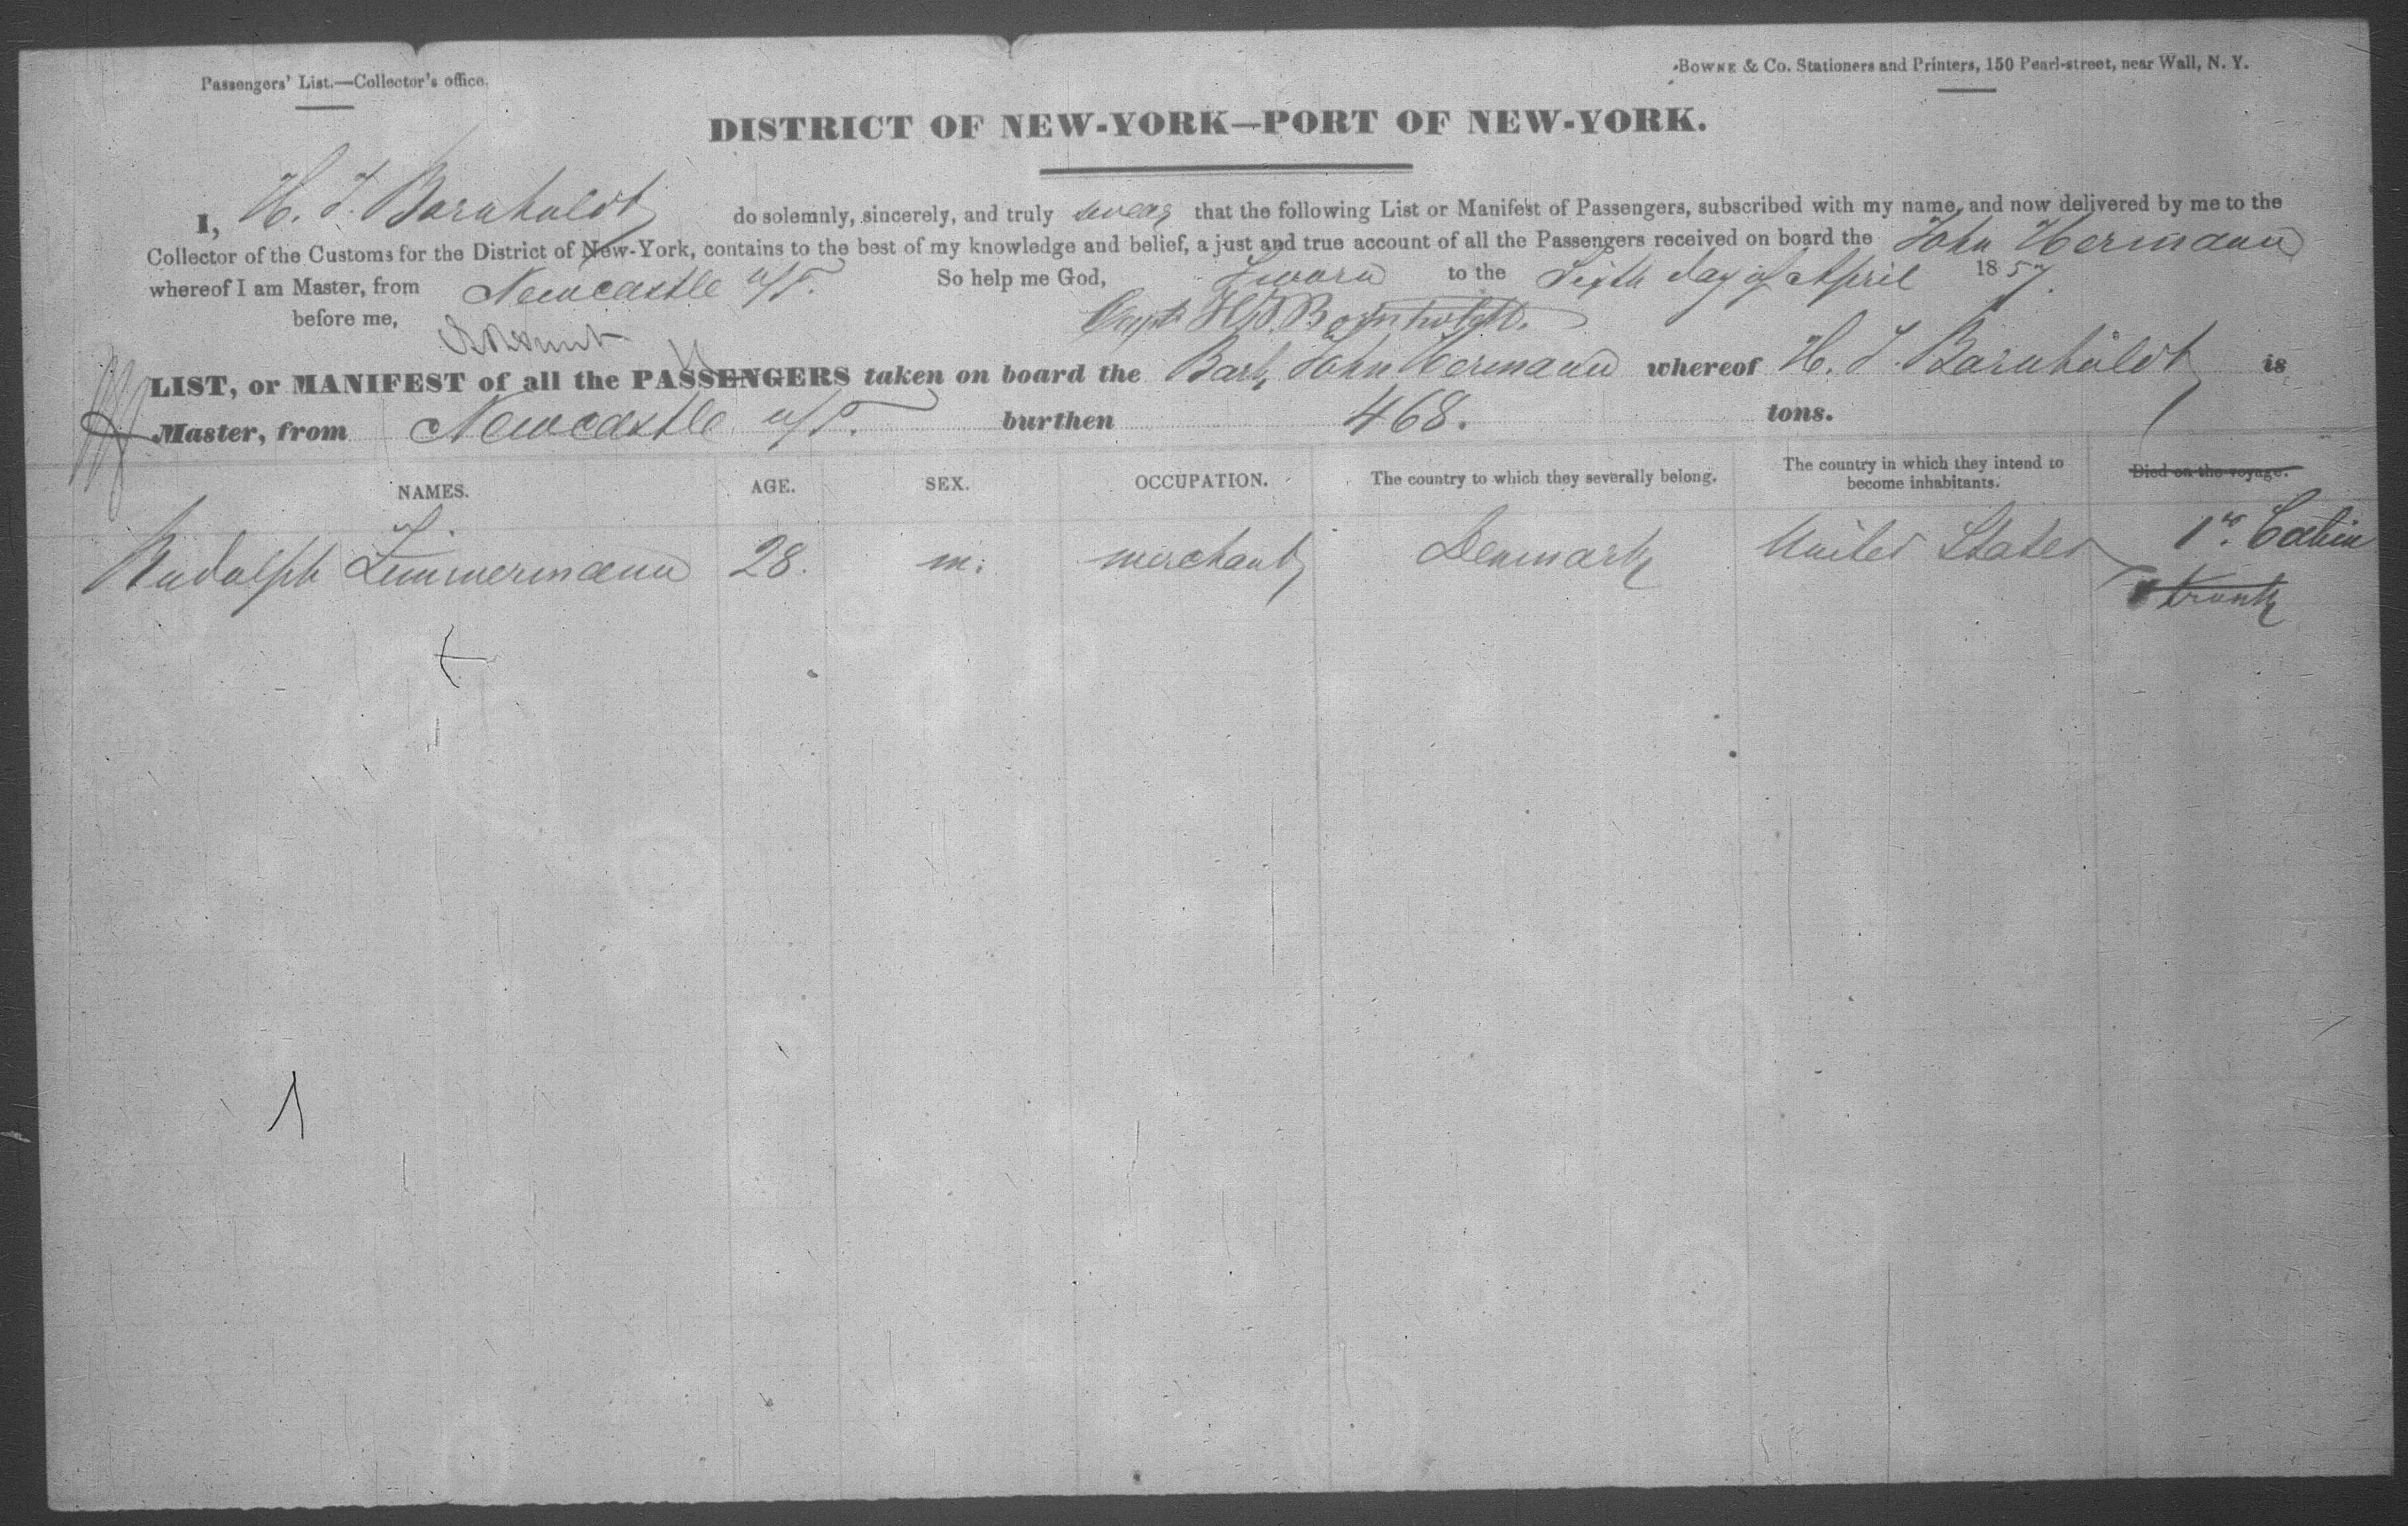 Passengers' List.—Collector's office.
BOWNE & Co. Stationers and Printers, 150 Pearl-street, near Wall, N. Y.
DISTRICT OF NEW-YORK—PORT OF NEW-YORK.
I, H. J. Barnholdt do solemnly, sincerely, and truly swear that the following List or Manifest of Passengers, subscribed with my name, and now delivered by me to the
Collector of the Customs for the District of New-York, contains to the best of my knowledge and belief, a just and true account of all the Passengers received on board the John Hermann
whereof I am Master, from Newcastle u/T. So help me God, Sworn to the Sixth day of April 1857.
before me, Capt H. J. Barnholdt.
LIST, or MANIFEST of all the PASSENGERS taken on board the Bark John Hermann whereof H. J. Barnholdt is
Master, from Newcastle u/T. burthen 468. tons.
NAMES. AGE. SEX. OCCUPATION. The country to which they severally belong. The country in which they intend to become inhabitants. Died on the voyage.
Rudolph Zimmermann 28. m: merchant Denmark United States 1st. Cabin
trunk